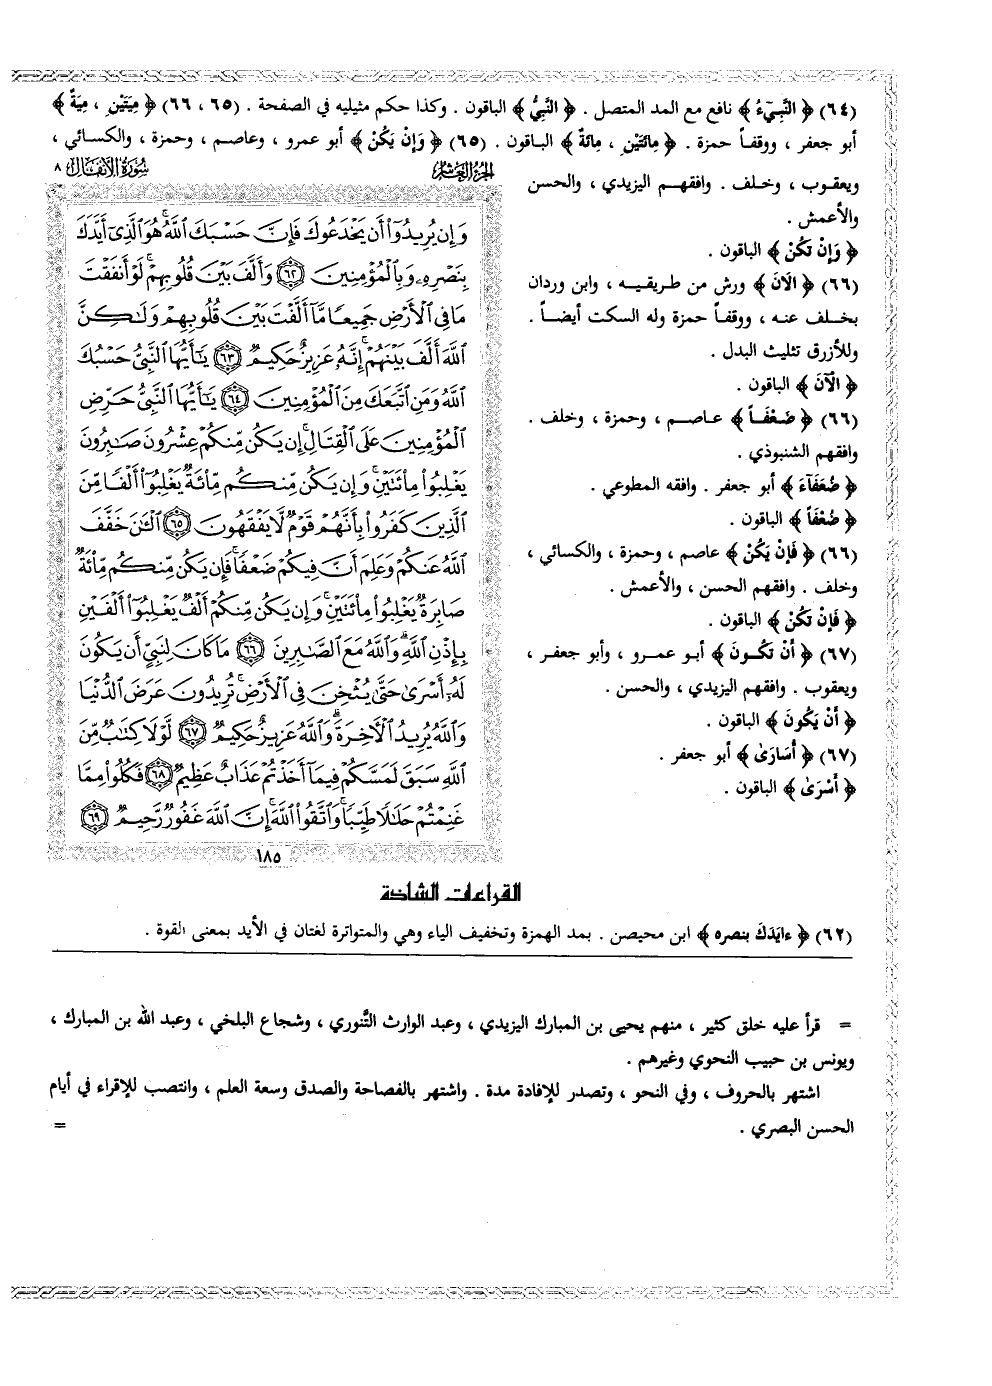 (٦٤) ﴿ النَّبِيٓءُ ﴾ نافع مع المد المتصل . ﴿ النَّبِيُّ ﴾ الباقون . وكذا حكم مثيليه في الصفحة . (٦٥ ، ٦٦) ﴿ مِيَتَيْنِ ، مِيَةٌ ﴾
أبو جعفر ، ووقفاً حمزة . ﴿ مِائَتَيْنِ ، مِائَةٌ ﴾ الباقون . (٦٥) ﴿ وَإِنْ يَكُنْ ﴾ أبو عمرو ، وعاصم ، وحمزة ، والكسائي ،
ويعقوب ، وخلف . وافقهم اليزيدي ، والحسن
والأعمش .
﴿ وَإِنْ تَكُنْ ﴾ الباقون .
(٦٦) ﴿ الَانَ ﴾ ورش من طريقيه ، وابن وردان
بخلف عنه ، ووقفاً حمزة وله السكت أيضاً .
وللأزرق تثليث البدل .
﴿ الْآنَ ﴾ الباقون .
(٦٦) ﴿ ضَعْفَاً ﴾ عاصم ، وحمزة ، وخلف .
وافقهم الشنبوذي .
﴿ ضُعَفَآءَ ﴾ أبو جعفر . وافقه المطوعي .
﴿ ضُعْفَاً ﴾ الباقون .
(٦٦) ﴿ فَإِنْ يَكُنْ ﴾ عاصم ، وحمزة ، والكسائي ،
وخلف . وافقهم الحسن ، والأعمش .
﴿ فَإِنْ تَكُنْ ﴾ الباقون .
(٦٧) ﴿ أَنْ تَكُونَ ﴾ أبو عمرو ، وأبو جعفر ،
ويعقوب . وافقهم اليزيدي ، والحسن .
﴿ أَنْ يَكُونَ ﴾ الباقون .
(٦٧) ﴿ أُسَارَىٰ ﴾ أبو جعفر .
﴿ أَسْرَىٰ ﴾ الباقون .
الجزء العاشر سورة الأنفال ٨
وَإِن يُرِيدُوٓا۟ أَن يَخْدَعُوكَ فَإِنَّ حَسْبَكَ ٱللَّهُ ۚ هُوَ ٱلَّذِىٓ أَيَّدَكَ
بِنَصْرِهِۦ وَبِٱلْمُؤْمِنِينَ ٦٢ وَأَلَّفَ بَيْنَ قُلُوبِهِمْ ۚ لَوْ أَنفَقْتَ
مَا فِى ٱلْأَرْضِ جَمِيعًا مَّآ أَلَّفْتَ بَيْنَ قُلُوبِهِمْ وَلَـٰكِنَّ
ٱللَّهَ أَلَّفَ بَيْنَهُمْ ۚ إِنَّهُۥ عَزِيزٌ حَكِيمٌ ٦٣ يَـٰٓأَيُّهَا ٱلنَّبِىُّ حَسْبُكَ
ٱللَّهُ وَمَنِ ٱتَّبَعَكَ مِنَ ٱلْمُؤْمِنِينَ ٦٤ يَـٰٓأَيُّهَا ٱلنَّبِىُّ حَرِّضِ
ٱلْمُؤْمِنِينَ عَلَى ٱلْقِتَالِ ۚ إِن يَكُن مِّنكُمْ عِشْرُونَ صَـٰبِرُونَ
يَغْلِبُوا۟ مِا۟ئَتَيْنِ ۚ وَإِن يَكُن مِّنكُم مِّا۟ئَةٌ يَغْلِبُوٓا۟ أَلْفًا مِّنَ
ٱلَّذِينَ كَفَرُوا۟ بِأَنَّهُمْ قَوْمٌ لَّا يَفْقَهُونَ ٦٥ ٱلْـَٔـٰنَ خَفَّفَ
ٱللَّهُ عَنكُمْ وَعَلِمَ أَنَّ فِيكُمْ ضَعْفًا ۚ فَإِن يَكُن مِّنكُم مِّا۟ئَةٌ
صَابِرَةٌ يَغْلِبُوا۟ مِا۟ئَتَيْنِ ۚ وَإِن يَكُن مِّنكُمْ أَلْفٌ يَغْلِبُوٓا۟ أَلْفَيْنِ
بِإِذْنِ ٱللَّهِ ۗ وَٱللَّهُ مَعَ ٱلصَّـٰبِرِينَ ٦٦ مَا كَانَ لِنَبِىٍّ أَن يَكُونَ
لَهُۥٓ أَسْرَىٰ حَتَّىٰ يُثْخِنَ فِى ٱلْأَرْضِ ۚ تُرِيدُونَ عَرَضَ ٱلدُّنْيَا
وَٱللَّهُ يُرِيدُ ٱلْـَٔاخِرَةَ ۗ وَٱللَّهُ عَزِيزٌ حَكِيمٌ ٦٧ لَّوْلَا كِتَـٰبٌ مِّنَ
ٱللَّهِ سَبَقَ لَمَسَّكُمْ فِيمَآ أَخَذْتُمْ عَذَابٌ عَظِيمٌ ٦٨ فَكُلُوا۟ مِمَّا
غَنِمْتُمْ حَلَـٰلًا طَيِّبًا ۚ وَٱتَّقُوا۟ ٱللَّهَ ۚ إِنَّ ٱللَّهَ غَفُورٌ رَّحِيمٌ ٦٩
١٨٥
القراءات الشاذة
(٦٢) ﴿ ءايَدَكَ بنصره ﴾ ابن محيصن . بمد الهمزة وتخفيف الياء وهي والمتواترة لغتان في الأيد بمعنى القوة .
= قرأ عليه خلق كثير ، منهم يحيى بن المبارك اليزيدي ، وعبد الوارث التَّنوري ، وشجاع البلخي ، وعبد الله بن المبارك ،
ويونس بن حبيب النحوي وغيرهم .
اشتهر بالحروف ، وفي النحو ، وتصدر للإفادة مدة . واشتهر بالفصاحة والصدق وسعة العلم ، وانتصب للإقراء في أيام
الحسن البصري . =